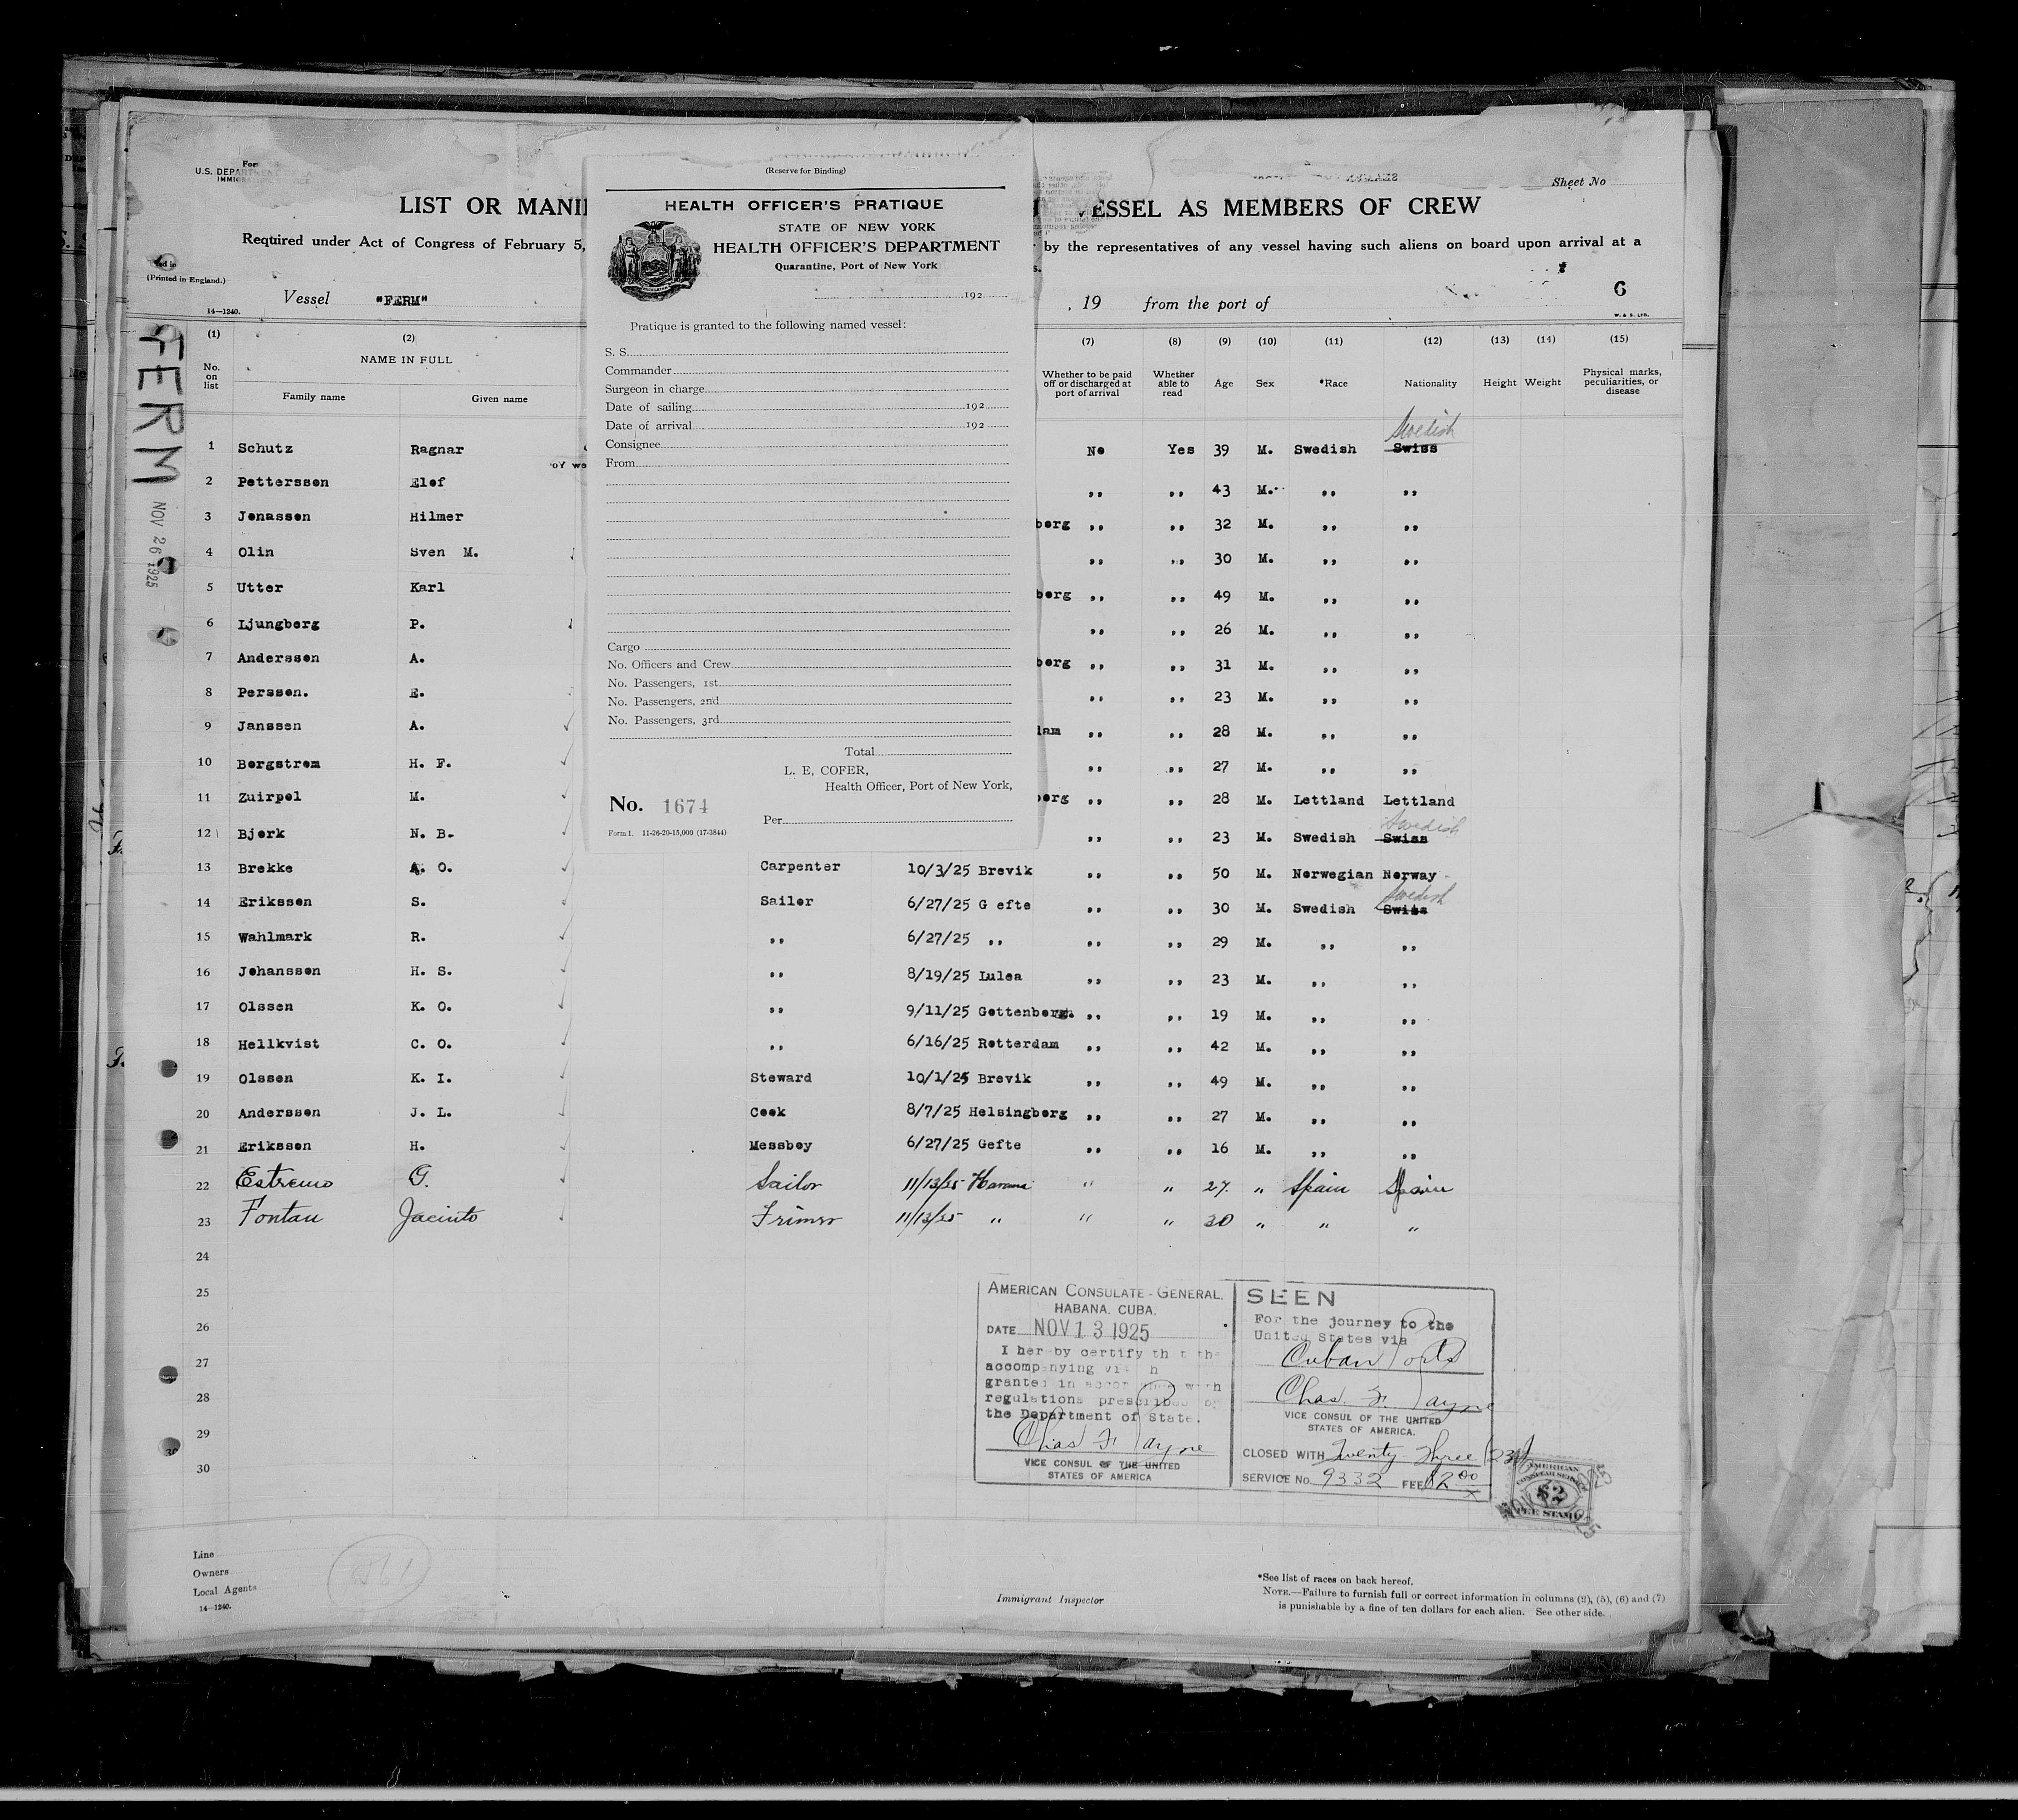 For
U.S. DEPARTMENT
IMMIGRATION SERVICE
Sheet No
LIST OR MANI
ESSEL AS MEMBERS OF CREW
Required under Act of Congress of February 5,
by the representatives of any vessel having such aliens on board upon arrival at a
(Printed in England.)
Vessel "FERM"
, 19 from the port of
6
14—1240.
W. & S. LTD.
FERM
NOV 26 1925
(Reserve for Binding)
HEALTH OFFICER'S PRATIQUE
STATE OF NEW YORK
HEALTH OFFICER'S DEPARTMENT
Quarantine, Port of New York
192
Pratique is granted to the following named vessel:
S. S.
Commander
Surgeon in charge
Date of sailing 192
Date of arrival 192
Consignee
From
Cargo
No. Officers and Crew
No. Passengers, 1st
No. Passengers, 2nd
No. Passengers, 3rd
Total
L. E. COFER,
Health Officer, Port of New York,
No. 1674
Per
Form 1. 11-26-20-15,000 (17-3844)
(1) (2) (7) (8) (9) (10) (11) (12) (13) (14) (15)
No. on list
NAME IN FULL
Family name Given name
Whether to be paid off or discharged at port of arrival
Whether able to read
Age Sex *Race Nationality Height Weight
Physical marks, peculiarities, or disease
Swedish
1 Schutz Ragnar No Yes 39 M. Swedish Swiss
of wo
2 Pettersson Elof ,, ,, 43 M. ,, ,,
3 Jonasson Hilmer borg ,, ,, 32 M. ,, ,,
4 Olin Sven M. ,, ,, 30 M. ,, ,,
5 Utter Karl borg ,, ,, 49 M. ,, ,,
6 Ljungberg P. ,, ,, 26 M. ,, ,,
7 Andersson A. borg ,, ,, 31 M. ,, ,,
8 Persson. E. ,, ,, 23 M. ,, ,,
9 Janssen A. dam ,, ,, 28 M. ,, ,,
10 Bergstrom H. F. ,, ,, 27 M. ,, ,,
11 Zuirpel M. borg ,, ,, 28 M. Lettland Lettland
Swedish
12 Bjork N. B. ,, ,, 23 M. Swedish Swiss
13 Brekke A. O. Carpenter 10/3/25 Brevik ,, ,, 50 M. Norwegian Norway
Swedish
14 Eriksson S. Sailor 6/27/25 G efte ,, ,, 30 M. Swedish Swiss
15 Wahlmark R. ,, 6/27/25 ,, ,, ,, 29 M. ,, ,,
16 Johansson H. S. ,, 8/19/25 Lulea ,, ,, 23 M. ,, ,,
17 Olssen K. O. ,, 9/11/25 Gottenborg. ,, ,, 19 M. ,, ,,
18 Hellkvist C. O. ,, 6/16/25 Rotterdam ,, ,, 42 M. ,, ,,
19 Olssen K. I. Steward 10/1/25 Brevik ,, ,, 49 M. ,, ,,
20 Andersson J. L. Cook 8/7/25 Helsingborg ,, ,, 27 M. ,, ,,
21 Eriksson H. Messboy 6/27/25 Gefte ,, ,, 16 M. ,, ,,
22 Estremo G. Sailor 11/13/25 Havana " " 27. " Spain Spain
23 Fontan Jacinto Trimer 11/13/25 " " " 30 " " "
24
25
26
27
28
29
30
AMERICAN CONSULATE-GENERAL,
HABANA, CUBA.
DATE NOV 13 1925
I hereby certify that the
accompanying vi h
granted in accordance with
regulations prescribed by
the Department of State.
Chas F Payne
VICE CONSUL OF THE UNITED
STATES OF AMERICA
SEEN
For the journey to the
United States via
Cuban Ports
Chas. F. Payne
VICE CONSUL OF THE UNITED
STATES OF AMERICA.
CLOSED WITH Twenty three (23)
SERVICE No. 9332 FEE $2.00
AMERICAN
CONSULAR SERVICE
$2
FEE STAMP
Line
Owners
Local Agents
14—1240.
Immigrant Inspector
*See list of races on back hereof.
NOTE.—Failure to furnish full or correct information in columns (2), (5), (6) and (7)
is punishable by a fine of ten dollars for each alien. See other side.